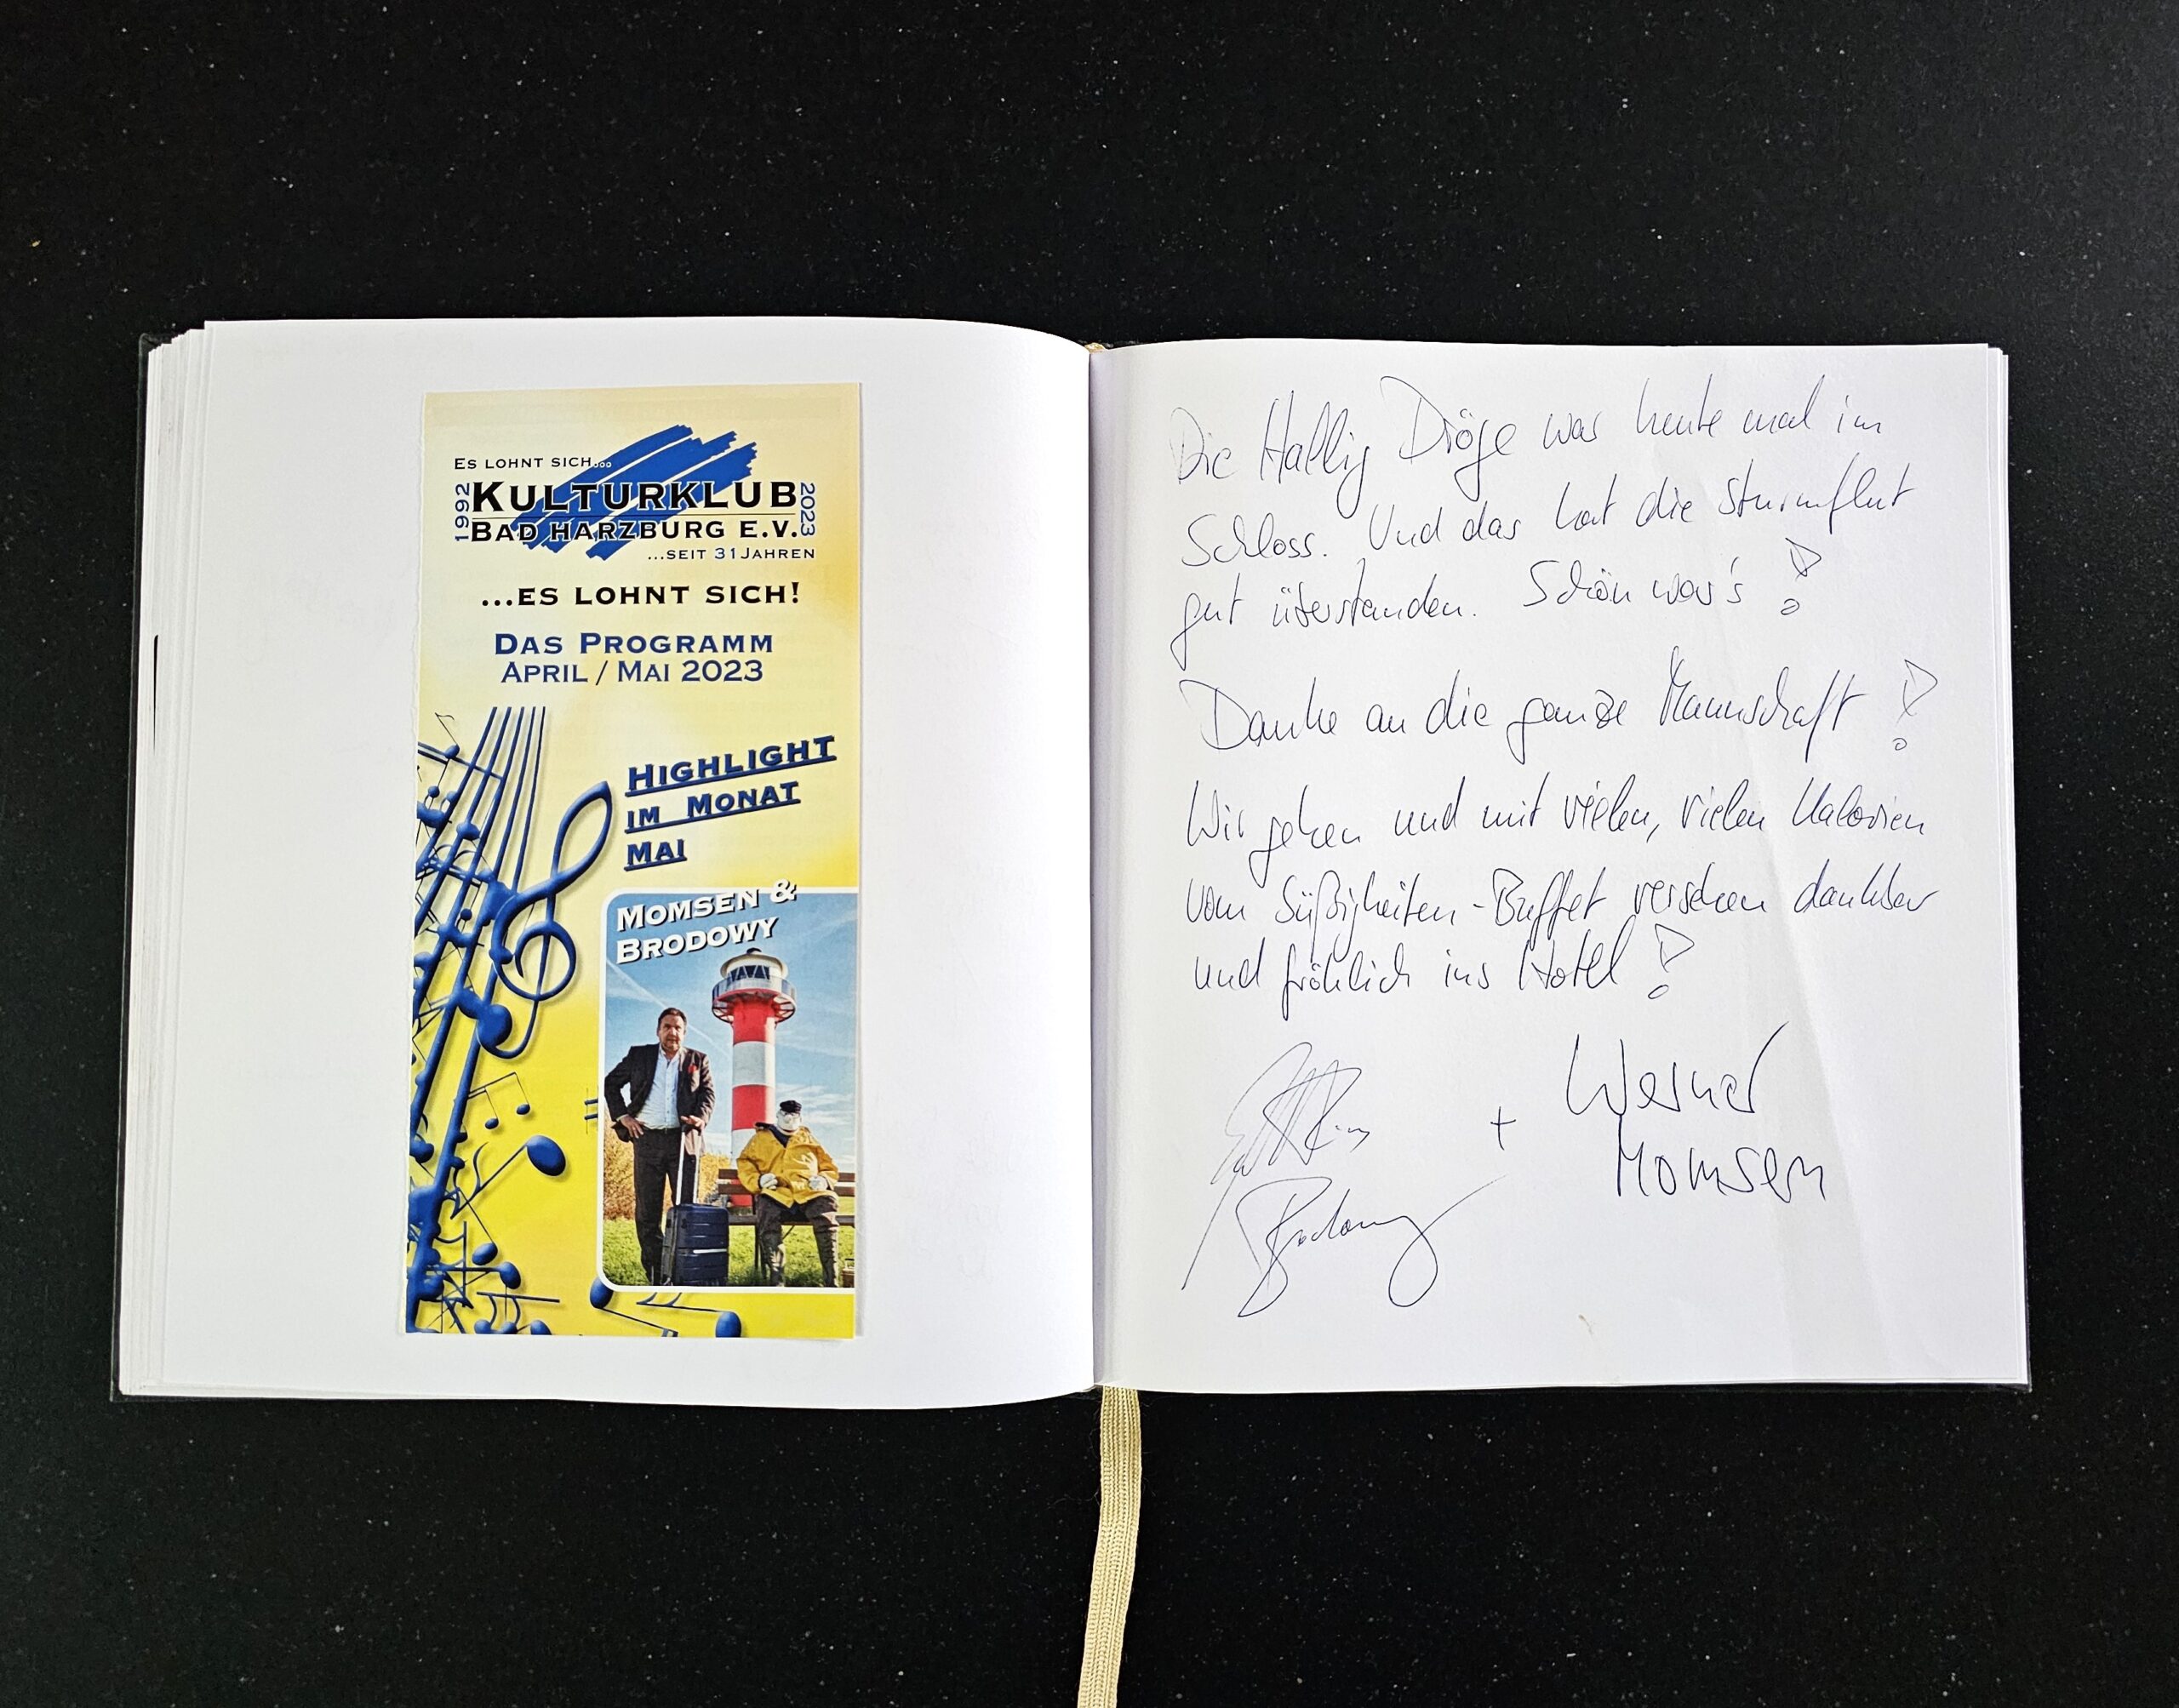 ES LOHNT SICH...
1992
KULTURKLUB
2023
BAD HARZBURG E.V.
...SEIT 31 JAHREN
...ES LOHNT SICH!
DAS PROGRAMM
APRIL / MAI 2023
HIGHLIGHT
IM MONAT
MAI
MOMSEN &
BRODOWY
Die Hallig Dröge war heute mal im
Schloss. Und das hat die Sturmflut
gut überstanden. Schön war's!
Danke an die ganze Mannschaft!
Wir gehen und mit vielen, vielen Kalorien
vom Süßigkeiten-Buffet versehen dankbar
und fröhlich ins Hotel!
+ Werner
Momsen
Brodowy